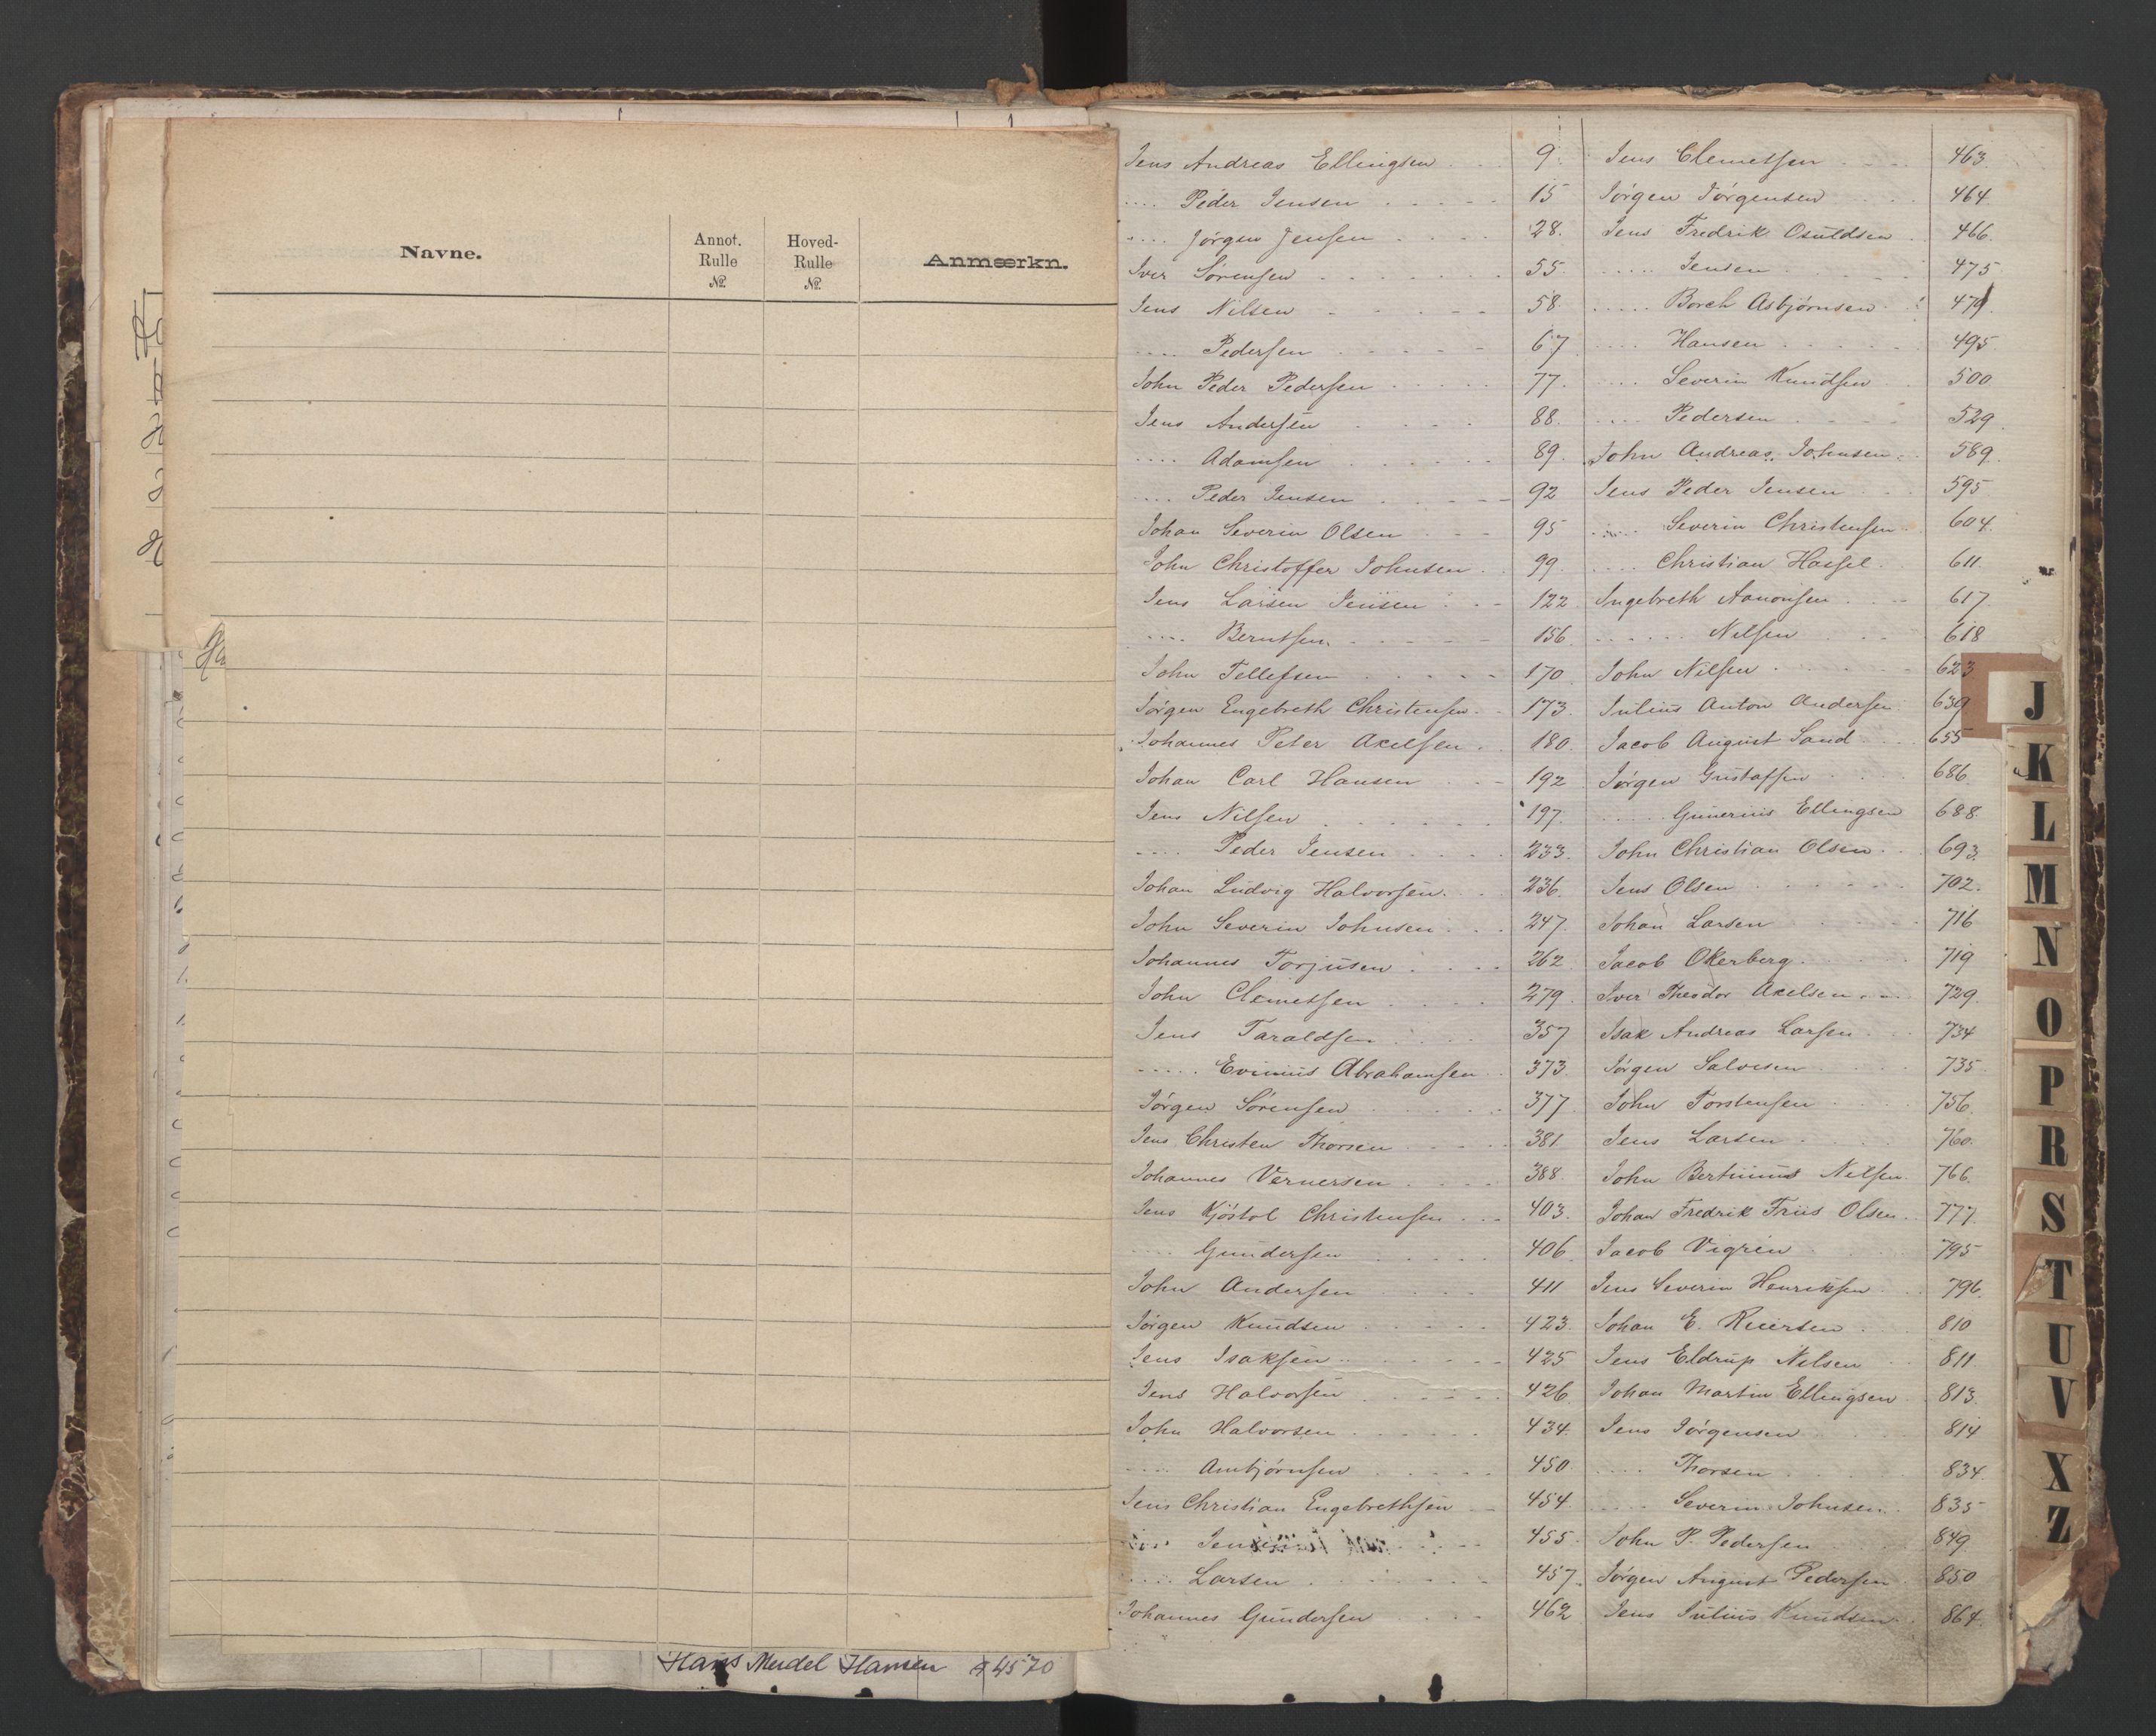 Navne.
Annot. Rulle №
Hoved- Rulle №
Anmærkn.
Hans Meidel Hansen 4570
Jens Andreas Ellingsen . . 9.
.... Peder Jensen . . . . 15
.... Jörgen Jensen . . . 28.
Iver Sörensen . . . . . 55.
Jens Nilsen . . . . . 58.
.... Pedersen . . . . . 67
John Peder Pedersen . . . . 77.
Jens Andersen . . . . 88.
.... Adamsen . . . . . 89.
.... Peder Jensen . . . . 92
Johan Severin Olsen . . . 95
John Christoffer Johnsen . . 99.
Jens Larsen Jensen . . . 122
.... Berntsen . . . . . 156
John Tellefsen . . . . . 170
Jörgen Engebreth Christensen . . 173.
Johannes Peter Axelsen . . 180.
Johan Carl Hansen . . . 192
Jens Nilsen . . . . . 197.
.... Peder Jensen . . . . 233.
Johan Ludvig Halvorsen . . . 236.
John Severin Johnsen . . . 247.
Johannes Torjusen . . . . 262
John Clemetsen . . . . 279.
Jens Taraldsen . . . . 357
..... Evinius Abrahamsen . . 373.
Jörgen Sörensen . . . . 377.
Jens Christen Thorsen . . . 381
Johannes Vernersen . . . . 388.
Jens Kjöstol Christensen . . . 403.
.... Gundersen . . . . 406
John Andersen . . . . 411
Jörgen Knudsen . . . . . 423.
Jens Isaksen . . . . . 425
Jens Halvorsen . . . . . 426
John Halvorsen . . . . . 434.
.... Ambjörnsen . . . . 450.
Jens Christian Engebrethsen . . 454.
.... Jensen . . . . 455.
.... Larsen . . . . . 457.
Johannes Gundersen . . . 462
Jens Clemetsen . . . . 463.
Jörgen Jörgensen . . . 464.
Jens Fredrik Osuldsen . 466.
..... Jensen . . . . 475
..... Borch Asbjörnsen . 479.
.... Hansen . . . . . 495
.... Severin Knudsen 500
.... Pedersen . . . . 529.
John Andreas Johnsen . 589.
Jens Peder Jensen . . . 595
..... Severin Christensen . . 604.
.... Christian Hassel . . 611.
Ingebreth Aanonsen . . . 617
...... Nilsen . . . 618
John Nilsen . . . . . 623
Julius Anton Andersen . 639
Jacob August Sand . . 655
Jörgen Gustafsen . . . 686.
..... Gunerius Ellingsen 688.
John Christian Olsen . . 693.
Jens Olsen . . . . . . 702.
Johan Larsen . . . . 716
Jacob Okerberg . . . . 719
Iver Theodor Axelsen . . . 729.
Isak Andreas Larsen . . 734
Jörgen Salvesen . . . . 735
John Torstensen . . . . 756.
Jens Larsen . . . . . 760.
John Bertinius Nilsen . 766.
Johan Fredrik Friis Olsen . . 777.
Jacob Vigrin . . . . 795
Jens Severin Henriksen . . 796.
Johan E. Reiersen . . 810
Jens Eldrup Nilsen . . 811.
Johan Martin Ellingsen . . 813.
Jens Jörgensen . . . 814
.... Thorsen . . . . 834.
..... Severin Johnsen . . 835
John P. Pedersen . . . 849
Jörgen August Pedersen . 850
Jens Julius Knudsen . . 864.
J
K
L
M
N
O
P
R
S
T
U
V
X
Z